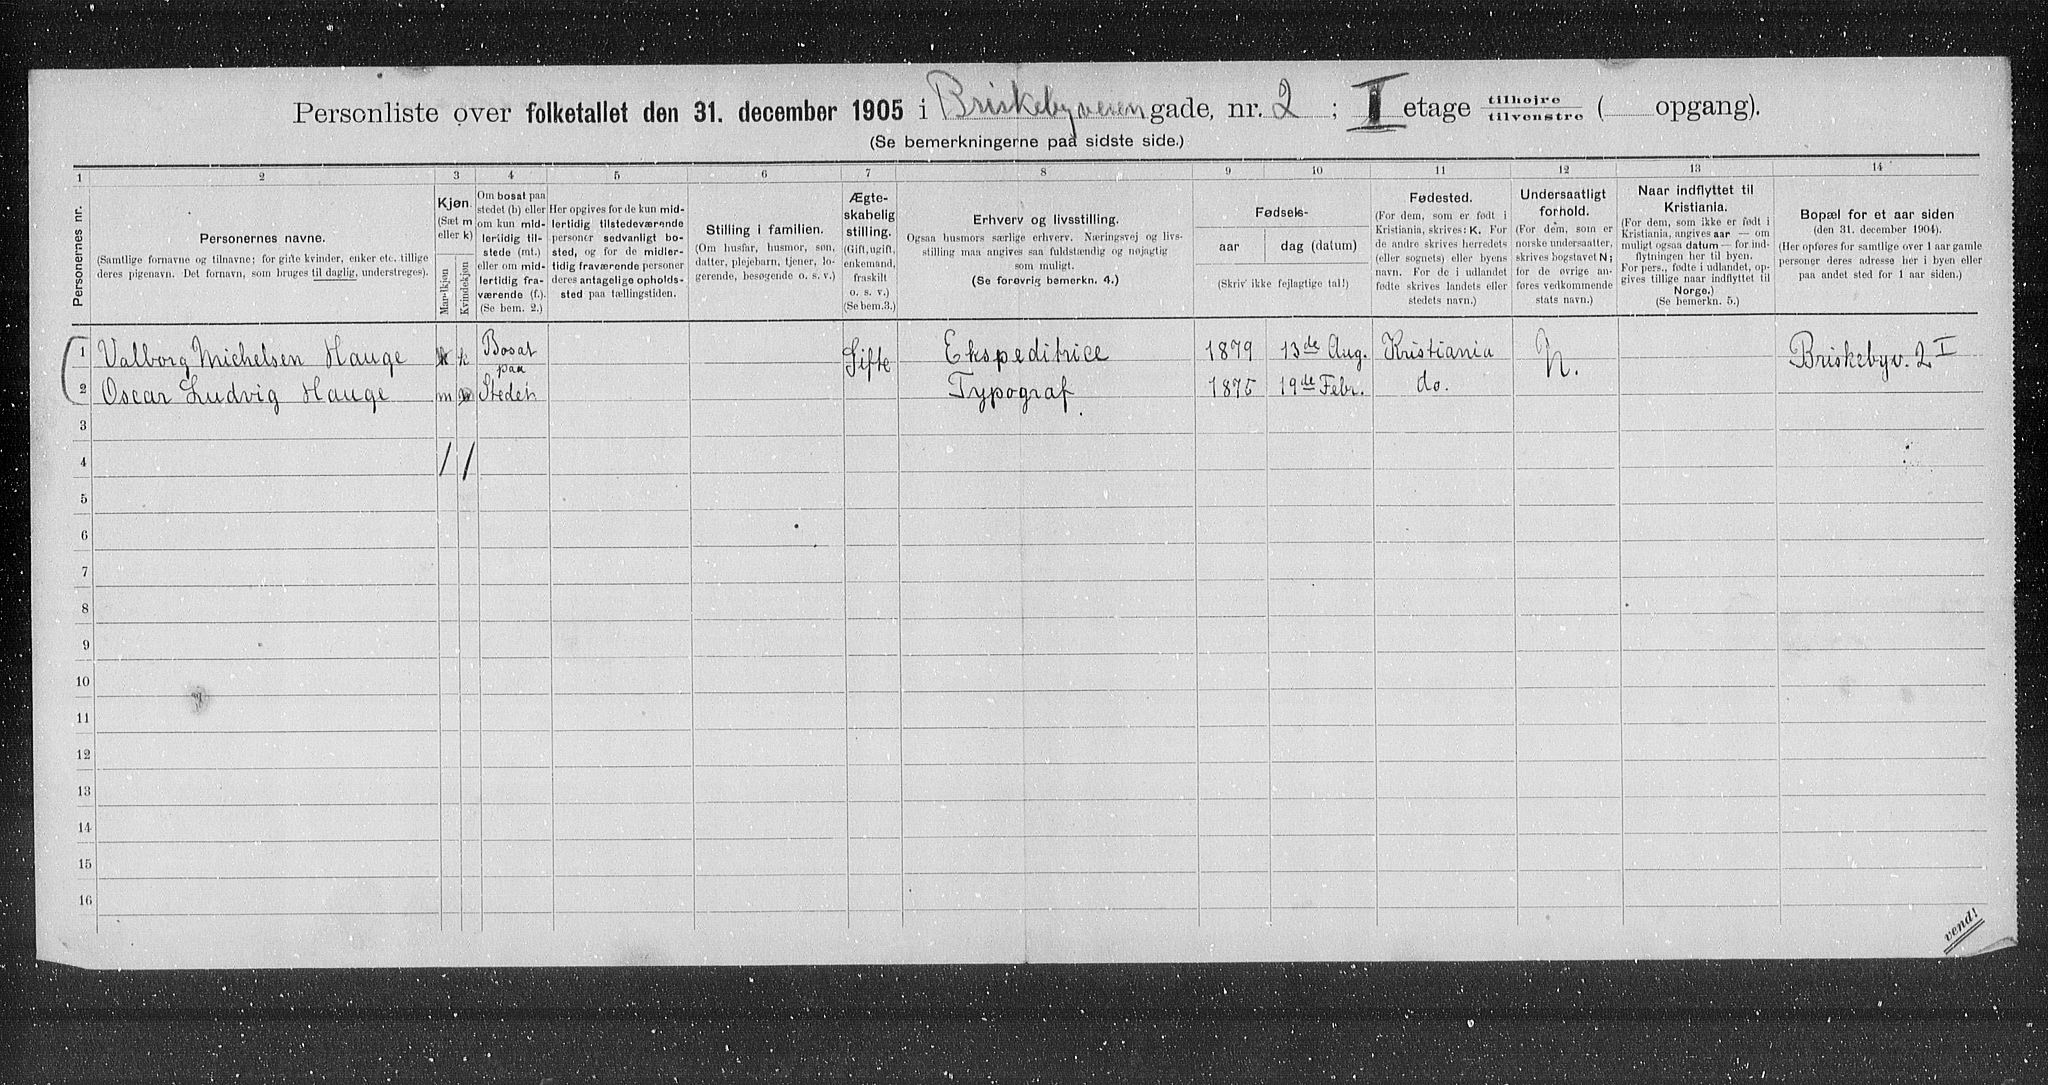 Personliste over folketallet den 31. december 1905 i Briskebyveien gade, nr. 2 ; I etage tilhøjre / tilvenstre ( opgang).
(Se bemerkningerne paa sidste side.)
1 2 3 4 5 6 7 8 9 10 11 12 13 14
Personernes nr.
Personernes navne.
(Samtlige fornavne og tilnavne; for gifte kvinder, enker etc. tillige
deres pigenavn. Det fornavn, som bruges til daglig, understreges).
Kjøn.
(Sæt m
eller k)
Mandkjøn
Kvindekjøn
Om bosat paa
stedet (b) eller
om kun mid-
lertidig til-
stede (mt.)
eller om mid-
lertidig fra-
værende (f.).
(Se bem. 2.)
Her opgives for de kun mid-
lertidig tilstedeværende
personer sedvanligt bo-
sted, og for de midler-
tidig fraværende personer
deres antagelige opholds-
sted paa tællingstiden.
Stilling i familien.
(Om husfar, husmor, søn,
datter, plejebarn, tjener, lo-
gerende, besøgende o. s. v.)
Ægte-
skabelig
stilling.
(Gift, ugift,
enkemand,
fraskilt
o. s. v.)
(Se bem.3.)
Erhverv og livsstilling.
Ogsaa husmors særlige erhverv. Næringsvej og livs-
stilling maa angives saa fuldstændig og nøjagtig
som muligt.
(Se forøvrig bemerkn. 4.)
Fødsels-
aar dag (datum)
(Skriv ikke fejlagtige tal!)
Fødested.
(For dem, som er født i
Kristiania, skrives: K. For
de andre skrives herredets
(eller sognets) eller byens
navn. For de i udlandet
fødte skrives landets eller
stedets navn.)
Undersaatligt
forhold.
(For dem, som er
norske undersaatter,
skrives bogstavet N;
for de øvrige an-
føres vedkommende
stats navn.)
Naar indflyttet til
Kristiania.
(For dem, som ikke er født i
Kristiania, angives aar — om
muligt ogsaa datum — for ind-
flytningen her til byen.
For pers., fødte i udlandet, op-
gives tillige naar indflyttet til
Norge.)
(Se bemerkn. 5.)
Bopæl for et aar siden
(den 31. december 1904).
(Her opføres for samtlige over 1 aar gamle
personer deres adresse her i byen eller
paa andet sted for 1 aar siden.)
1 Valborg Michelsen Hauge k Bosat paa Gifte Ekspeditrice 1879 13de Aug. Kristiania N. Briskebyv. 2 I
2 Oscar Ludvig Hauge m Stedet Typograf. 1875 19de Febr. do.
3
4 / /
5
6
7
8
9
10
11
12
13
14
15
16
vend!